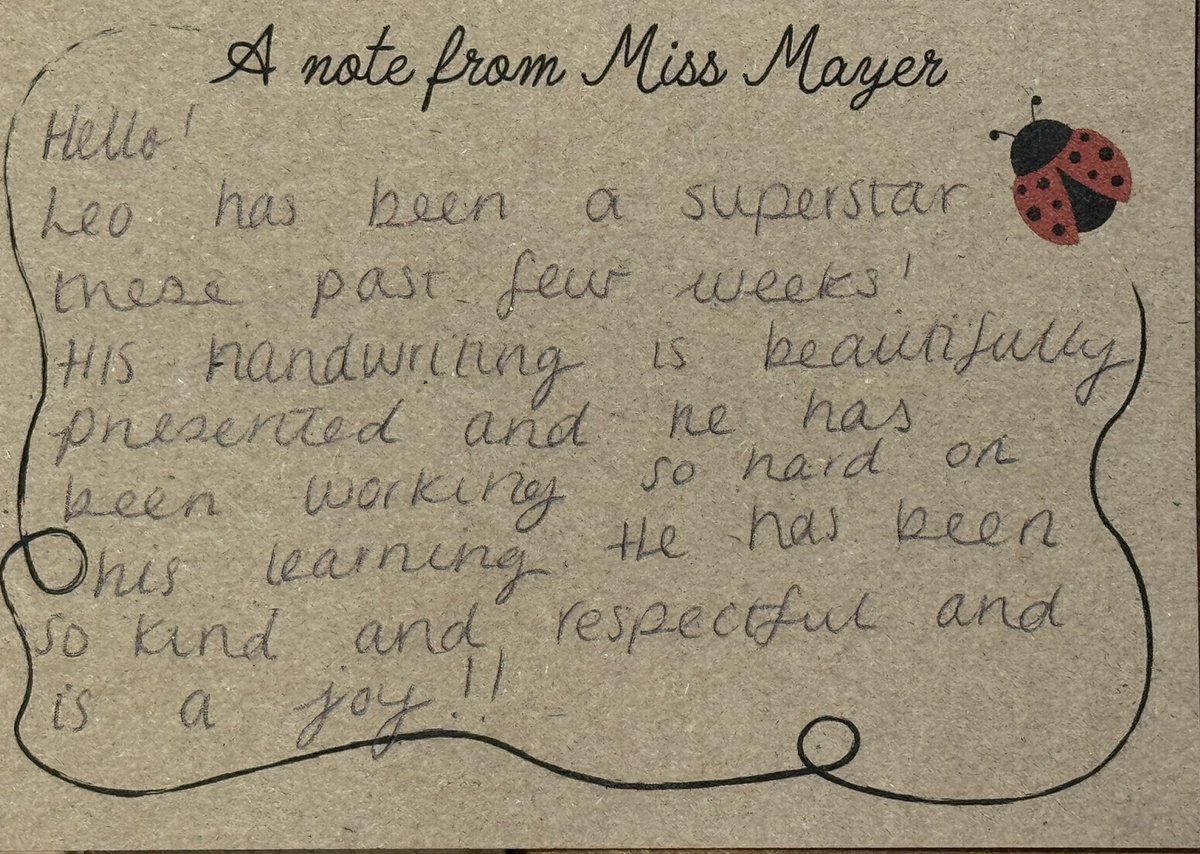 A note from Miss Mayer
Hello!
Leo has been a superstar
these past few weeks!
His handwriting is beautifully
presented and he has
been working so hard on
his learning. He has been
so kind and respectful and
is a joy!!